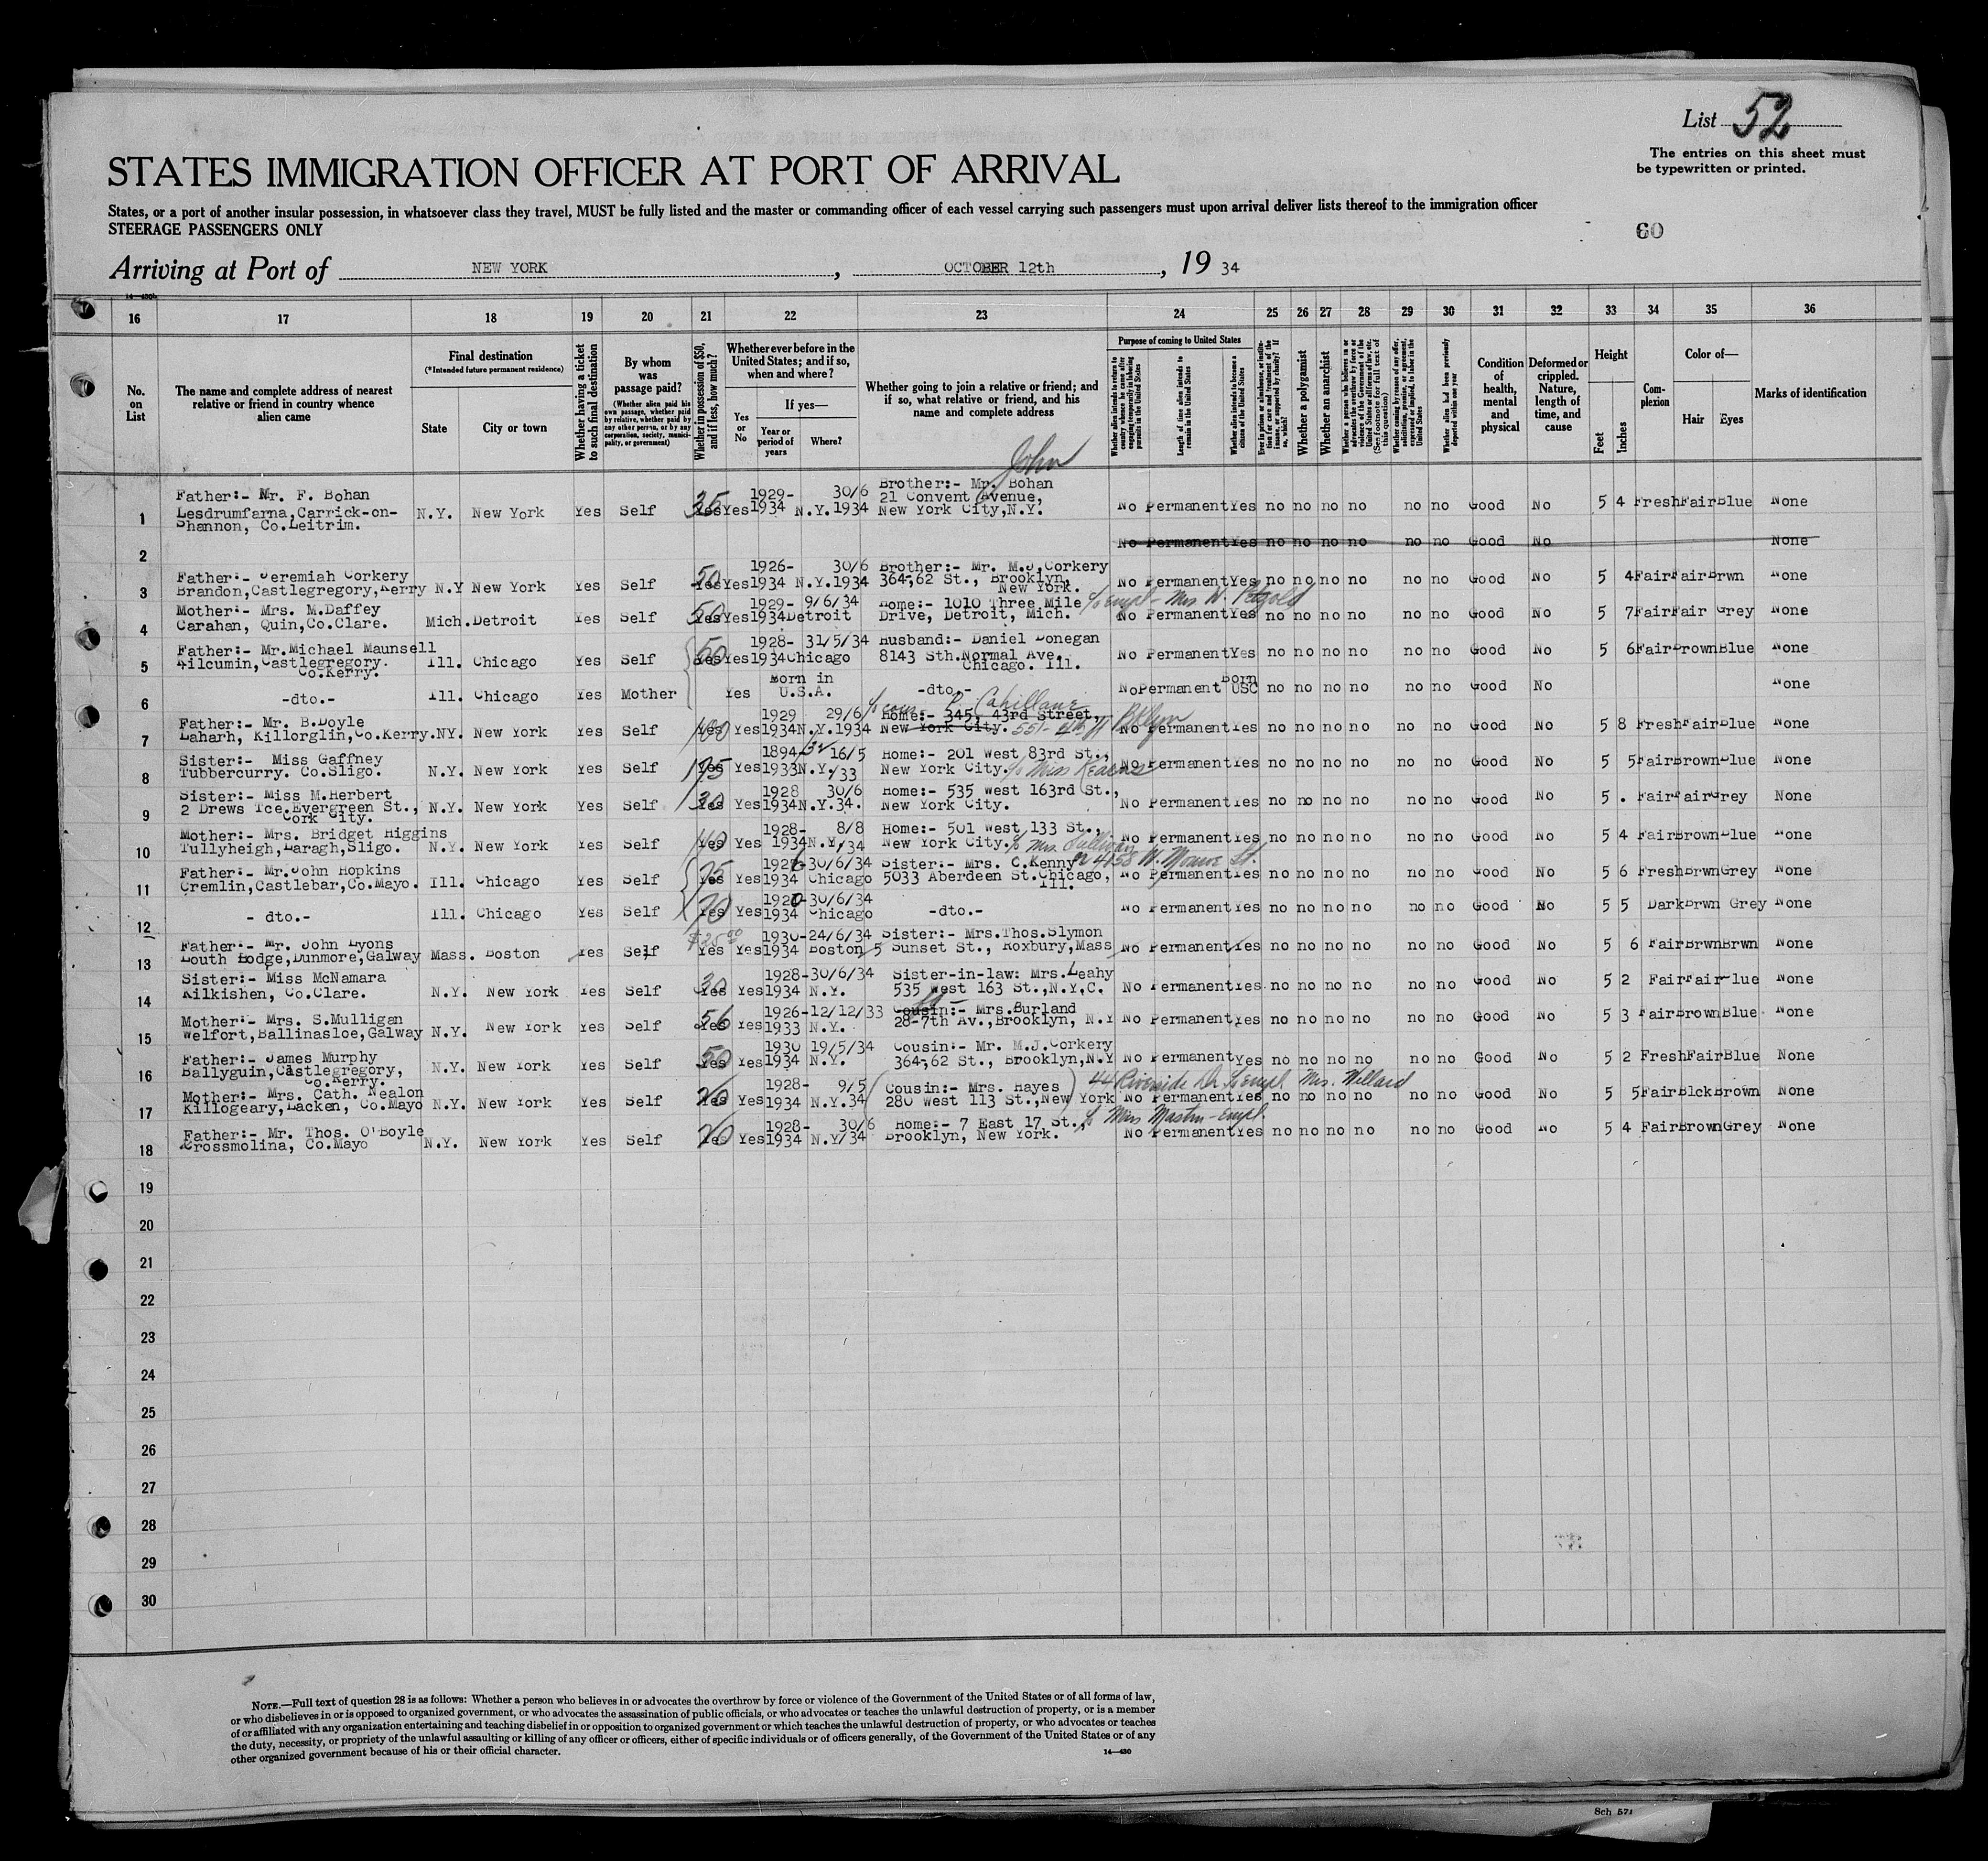 List 52
The entries on this sheet must
be typewritten or printed.
STATES IMMIGRATION OFFICER AT PORT OF ARRIVAL
States, or a port of another insular possession, in whatsoever class they travel, MUST be fully listed and the master or commanding officer of each vessel carrying such passengers must upon arrival deliver lists thereof to the immigration officer
STEERAGE PASSENGERS ONLY
60
Arriving at Port of NEW YORK, OCTOBER 12th, 19 34
16 17 18 19 20 21 22 23 24 25 26 27 28 29 30 31 32 33 34 35 36
No. on List
The name and complete address of nearest relative or friend in country whence alien came
Final destination
(*Intended future permanent residence)
State
City or town
Whether having a ticket to such final destination
By whom was passage paid?
(Whether alien paid his own passage, whether paid by relative, whether paid by any other person, or by any corporation, society, municipality, or government)
Whether in possession of $50, and if less, how much?
Whether ever before in the United States; and if so, when and where?
Yes or No
If yes—
Year or period of years
Where?
Whether going to join a relative or friend; and if so, what relative or friend, and his name and complete address
Purpose of coming to United States
Whether alien intends to return to country whence he came after engaging temporarily in laboring pursuits in the United States
Length of time alien intends to remain in the United States
Whether alien intends to become a citizen of the United States
Ever in prison or almshouse, or institution for care and treatment of the insane, or supported by charity? If so, which?
Whether a polygamist
Whether an anarchist
Whether a person who believes in or advocates the overthrow by force or violence of the Government of the United States or all forms of law, etc. (See footnote for full text of this question)
Whether coming by reason of any offer, solicitation, promise, or agreement, expressed or implied, to labor in the United States
Whether alien had been previously deported within one year
Condition of health, mental and physical
Deformed or crippled. Nature, length of time, and cause
Height
Feet
Inches
Complexion
Color of—
Hair
Eyes
Marks of identification
John
1 Father:- Mr. F. Bohan N.Y. New York Yes Self 35 Yes Yes 1929- 30/6 Brother:- Mr. Bohan No Permanent Yes no no no no no no Good No 5 4 Fresh Fair Blue None
Lesdrumfarna, Carrick-on- 1934 N.Y. 1934 21 Convent Avenue,
Shannon, Co.Leitrim. New York City, N.Y.
2 No Permanent Yes no no no no no no Good No None
3 Father:- Jeremiah Corkery N.Y New York Yes Self 50 Yes Yes 1926- 30/6 Brother:- Mr. M.J.Corkery No Permanent Yes no no no no no no Good No 5 4 Fair Fair Brwn None
Brandon, Castlegregory, Kerry 1934 N.Y. 1934 364-62 St., Brooklyn,
New York.
4 Mother:- Mrs. M.Daffey Mich. Detroit Yes Self 50 Yes Yes 1929- 9/6/34 Home:- 1010 Three Mile No Permanent Yes no no no no no no Good No 5 7 Fair Fair Grey None
Carahan, Quin, Co.Clare. 1934 Detroit Drive, Detroit, Mich.
5 Father:- Mr.Michael Maunsell Ill. Chicago Yes Self 50 Yes Yes 1928- 31/5/34 Husband:- Daniel Donegan No Permanent Yes no no no no no no Good No 5 6 Fair Brown Blue None
Kilcumin, Castlegregory. 1934 Chicago 8143 Sth.Normal Ave.
Co.Kerry. Chicago. Ill.
6 -dto.- Ill. Chicago Yes Mother Yes Born in U.S.A. -dto.- No Permanent Born USC no no no no no no Good No None
c/o cous. P. Cahillane
7 Father:- Mr. B.Doyle NY. New York Yes Self 100 Yes Yes 1929 29/6 Home:- 345, 43rd Street, No Permanent Yes no no no no no no Good No 5 8 Fresh Fair Blue None
Laharh, Killorglin, Co.Kerry. 1934 N.Y. 1934 New York City. 551-4th Bklyn
8 Sister:- Miss Gaffney N.Y. New York Yes Self 175 Yes Yes 1894- 16/5 Home:- 201 West 83rd St., No Permanent Yes no no no no no no Good No 5 5 Fair Brown Blue None
Tubbercurry. Co.Sligo. 1933 N.Y./33 New York City. c/o Miss Kearns
9 Sister:- Miss M.Herbert N.Y. New York Yes Self 30 Yes Yes 1928 30/6 Home:- 535 West 163rd St., No Permanent Yes no no no no no no Good No 5 . Fair Fair Grey None
2 Drews Tce. Evergreen St., 1934 N.Y. 34. New York City.
Cork City.
10 Mother:- Mrs. Bridget Higgins N.Y. New York Yes Self 40 Yes Yes 1928- 8/8 Home:- 501 West 133 St., No Permanent Yes no no no no no no Good No 5 4 Fair Brown Blue None
Tullyheigh, Laragh, Sligo. 1934 N.Y./34 New York City. c/o Mrs. Sullivan
11 Father:- Mr.John Hopkins Ill. Chicago Yes Self 75 Yes Yes 30/6/34 Sister:- Mrs. C.Kenny or 4158 W. Monroe St. No Permanent Yes no no no no no no Good No 5 6 Fresh Brwn Grey None
Cremlin, Castlebar, Co.Mayo. 1934 Chicago 5033 Aberdeen St. Chicago,
Ill.
12 - dto.- Ill. Chicago Yes Self 70 Yes Yes 30/6/34 1934 Chicago -dto.- No Permanent Yes no no no no no no Good No 5 5 Dark Brwn Grey None
13 Father:- Mr. John Lyons Mass. Boston Yes Self $25.00 Yes Yes 1930- 24/6/34 Sister:- Mrs.Thos.Slymon No Permanent Yes no no no no no no Good No 5 6 Fair Brwn Brwn None
South Lodge, Dunmore, Galway 1934 Boston 5 Sunset St., Roxbury, Mass
14 Sister:- Miss McNamara N.Y. New York Yes Self 30 Yes Yes 1928- 30/6/34 Sister-in-law: Mrs.Leahy No Permanent Yes no no no no no no Good No 5 2 Fair Fair Blue None
Kilkishen, Co.Clare. 1934 N.Y. 535 West 163 St., N.Y.C.
15 Mother:- Mrs. S.Mulligan N.Y. New York Yes Self 56 Yes Yes 1926- 12/12/33 Cousin:- Mrs.Burland No Permanent Yes no no no no no no Good No 5 3 Fair Brown Blue None
Welfort, Ballinasloe, Galway 1933 N.Y. 28-7th Av., Brooklyn, N.Y
16 Father:- James Murphy N.Y. New York Yes Self 50 Yes Yes 1930 19/5/34 Cousin:- Mr. M.J.Corkery No Permanent Yes no no no no no no Good No 5 2 Fresh Fair Blue None
Ballyguin, Castlegregory, 1934 N.Y. 364-62 St., Brooklyn, N.Y
Co.Kerry.
17 Mother:- Mrs. Cath. Nealon N.Y. New York Yes Self Yes Yes 1928- 9/5 Cousin:- Mrs. Hayes 44 Riverside Dr. c/o empl. Mrs. Willard No Permanent Yes no no no no no no Good No 5 5 Fair Blck Brown None
Killogeary, Lacken, Co.Mayo 1934 N.Y. 34 280 West 113 St., New York
18 Father:- Mr. Thos. O'Boyle N.Y. New York Yes Self Yes Yes 1928- 30/6 Home:- 7 East 17 St., c/o Miss Mastin - Empl. No Permanent Yes no no no no no no Good No 5 4 Fair Brown Grey None
Crossmolina, Co.Mayo 1934 N.Y/34 Brooklyn, New York.
19
20
21
22
23
24
25
26
27
28
29
30
NOTE.—Full text of question 28 is as follows: Whether a person who believes in or advocates the overthrow by force or violence of the Government of the United States or of all forms of law,
or who disbelieves in or is opposed to organized government, or who advocates the assassination of public officials, or who advocates or teaches the unlawful destruction of property, or is a member
of or affiliated with any organization entertaining and teaching disbelief in or opposition to organized government or which teaches the unlawful destruction of property, or who advocates or teaches
the duty, necessity, or propriety of the unlawful assaulting or killing of any officer or officers, either of specific individuals or of officers generally, of the Government of the United States or of any
other organized government because of his or their official character.
14—430
Sch 571